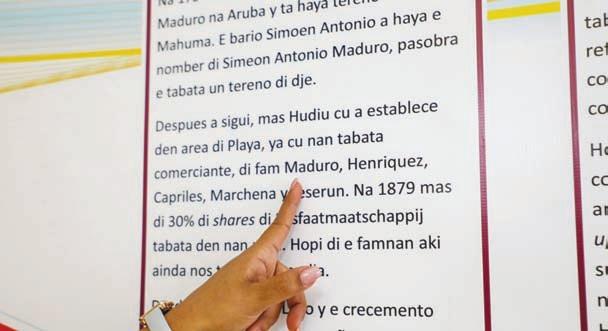 Na 17
Maduro na Aruba y ta haya tereno
Mahuma. E bario Simoen Antonio a haya e
nomber di Simeon Antonio Maduro, pasobra
e tabata un tereno di dje.
Despues a sigui, mas Hudiu cu a establece
den area di Playa, ya cu nan tabata
comerciante, di fam Maduro, Henriquez,
Capriles, Marchena y eserun. Na 1879 mas
di 30% di shares di sfaatmaatschappij
tabata den nan . Hopi di e famnan aki
ainda nos t ia.
o y e crecemento
tab
ret
co
co
H
co
ar
u
su
n